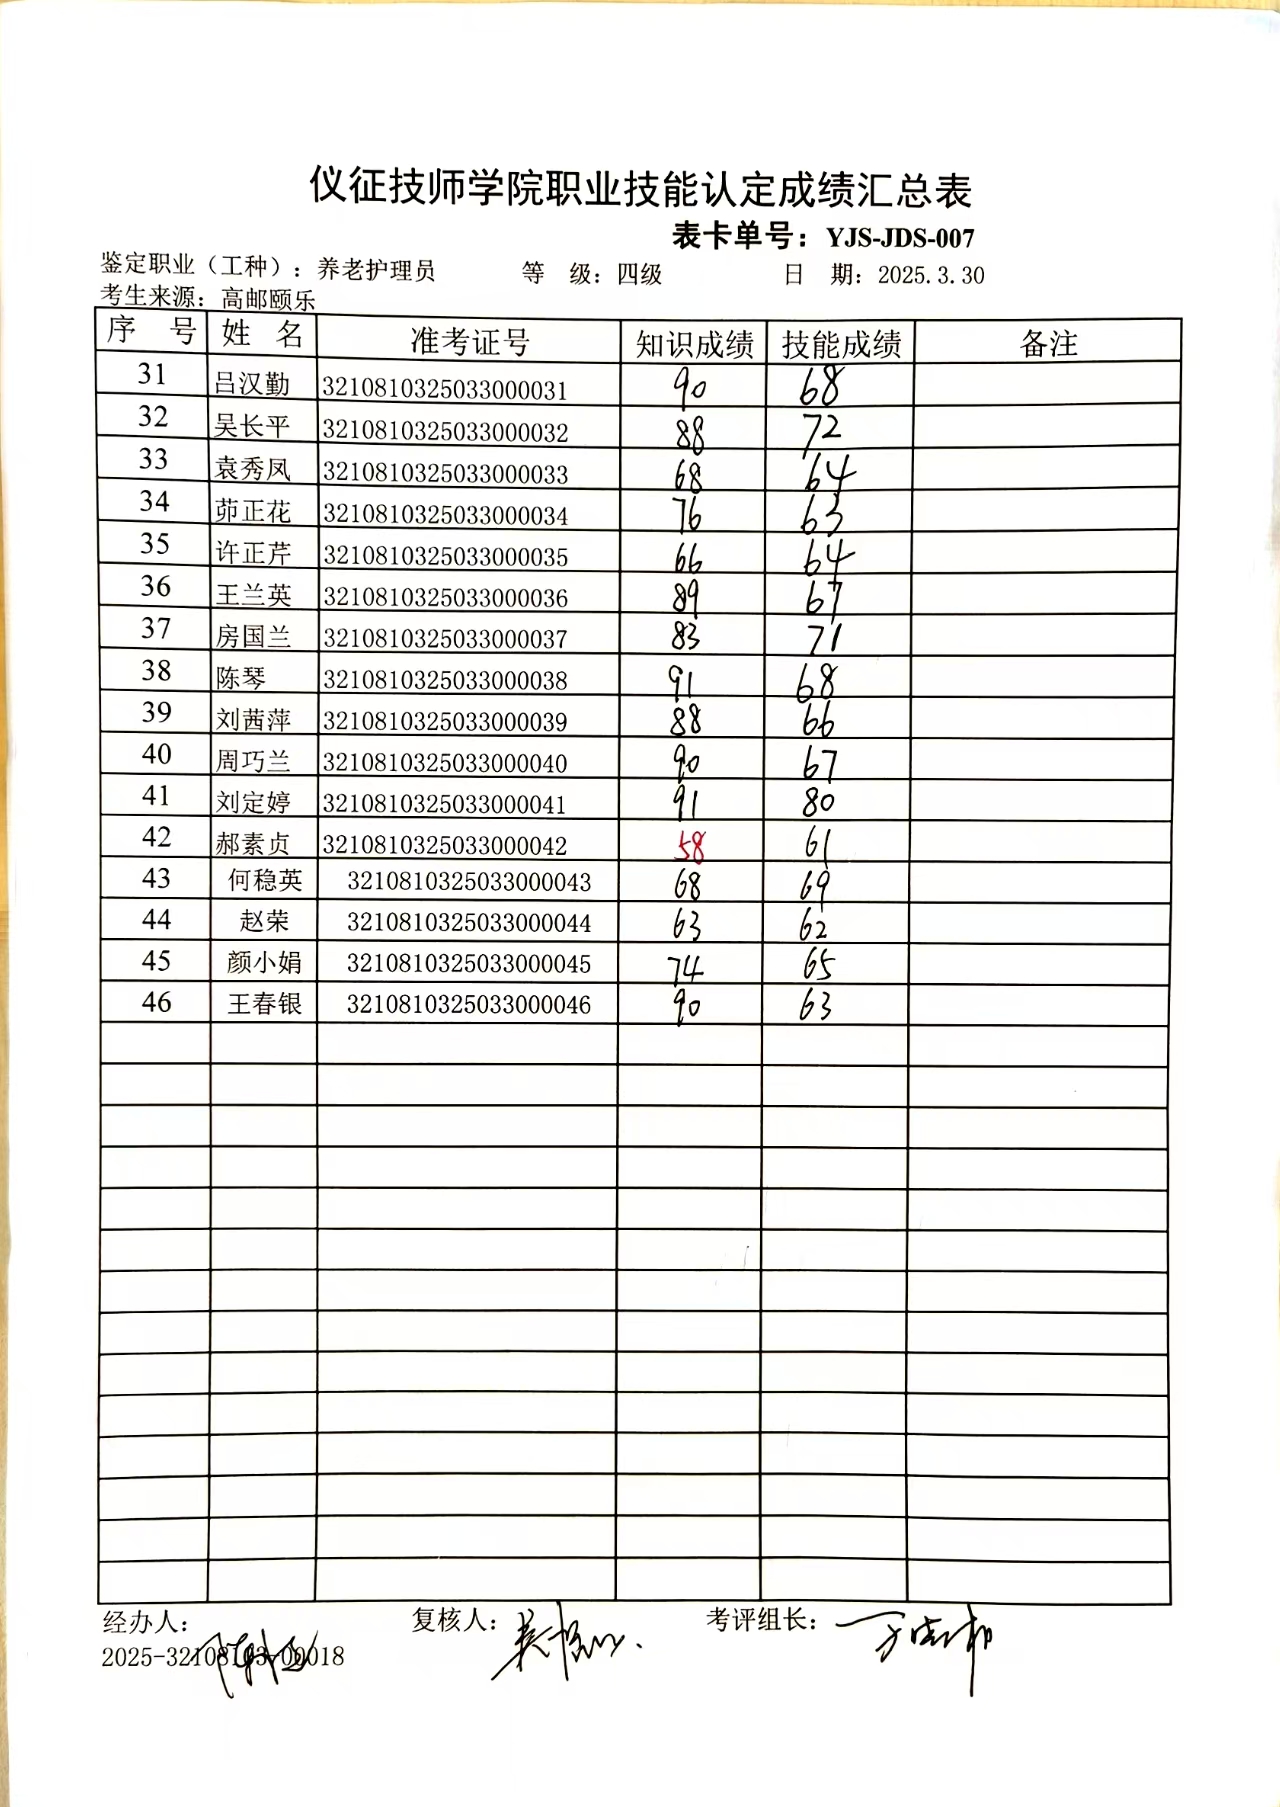 仪征技师学院职业技能认定成绩汇总表
表卡单号：YJS-JDS-007
鉴定职业（工种）：养老护理员 等 级：四级 日 期：2025.3.30
考生来源：高邮颐乐
序 号 姓 名 准考证号 知识成绩 技能成绩 备注
31 吕汉勤 3210810325033000031 90 68
32 吴长平 3210810325033000032 88 72
33 袁秀凤 3210810325033000033 68 64
34 茆正花 3210810325033000034 76 63
35 许正芹 3210810325033000035 66 64
36 王兰英 3210810325033000036 89 67
37 房国兰 3210810325033000037 83 71
38 陈琴 3210810325033000038 91 68
39 刘茜萍 3210810325033000039 88 66
40 周巧兰 3210810325033000040 90 67
41 刘定婷 3210810325033000041 91 80
42 郝素贞 3210810325033000042 58 61
43 何稳英 3210810325033000043 68 69
44 赵荣 3210810325033000044 63 62
45 颜小娟 3210810325033000045 74 65
46 王春银 3210810325033000046 90 63
经办人： 复核人： 考评组长：